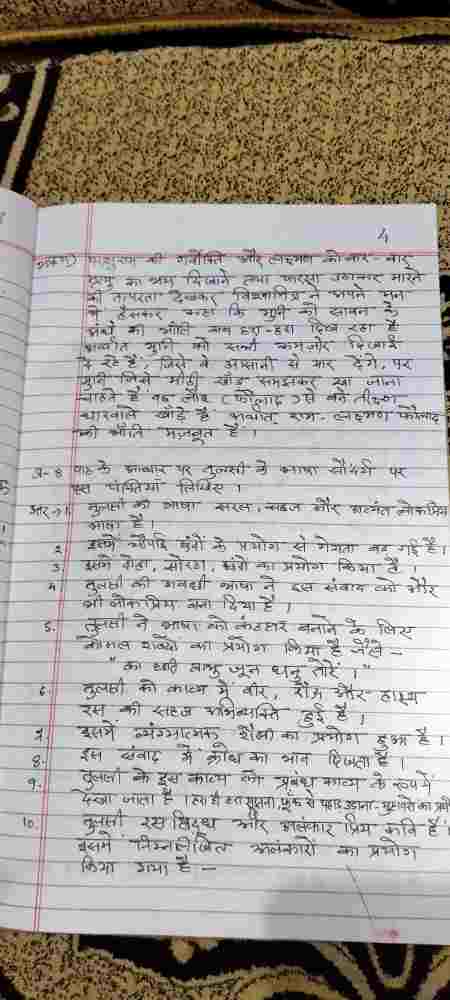 4
परशुराम की गर्वोक्ति और लक्ष्मण को बार-बार
का भय दिखाने तथा फरसा उठाकर मारने
की तत्परता देखकर विश्वामित्र ने अपने मन
में हँसकर कहा कि मुनि को सावन के
अंधे की भाँति सब हरा-हरा दिख रहा है
अर्थात मुनि को सभी कमजोर दिखाई
दे रहे हैं, जिसे वे आसानी से मार देंगे, पर
मुनि जिसे मीठी खाँड समझकर खा जाना
चाहते हैं वह लौह (फौलाद) से बने तीक्ष्ण
धारवाले खाँडे हैं अर्थात् राम-लक्ष्मण फौलाद
की भाँति मजबूत हैं।
प्र-8 पाठ के आधार पर तुलसी के भाषा सौंदर्य पर
दस पंक्तियाँ लिखिए।
1. तुलसी की भाषा सरल, सहज और अत्यंत लोकप्रिय
भाषा है।
2. इसमें चौपाई छंदों के प्रयोग से गेयता बढ़ गई है।
3. इसमें दोहा, सोरठा, छंदों का प्रयोग किया है।
4. तुलसी की अवधी भाषा ने इस संवाद को और
भी लोकप्रिय बना दिया है।
5. तुलसी ने भाषा को कंठहार बनाने के लिए
कोमल शब्दों का प्रयोग किया है जैसे -
"का छति लाभु जून धनु तोरें।"
6. तुलसी के काव्य में वीर, रौद्र और हास्य
रस की सहज अभिव्यक्ति हुई है।
7. इसमें व्यंग्यात्मक शैली का प्रयोग हुआ है।
8. इस संवाद में क्रोध का भाव दिखता है।
9. तुलसी के इस काव्य को प्रबंध काव्य के रूप में
देखा जाता है। हरा ही हरा सूझना, फूँक से पहाड़ उड़ाना - मुहावरों का प्रयोग
10. तुलसी रस सिद्ध और अलंकार प्रिय कवि हैं।
इसमें निम्नलिखित अलंकारों का प्रयोग
किया गया है -